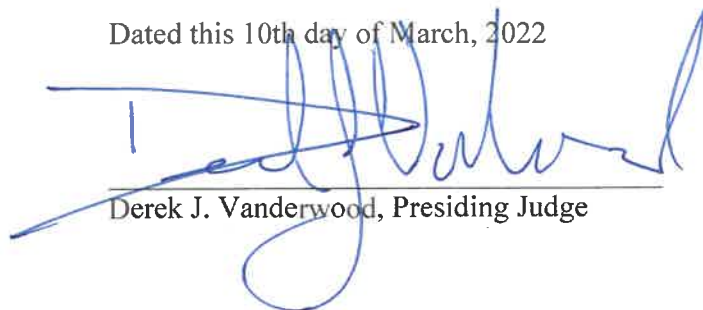 Dated this 10th day of March, 2022
Derek J. Vanderwood, Presiding Judge